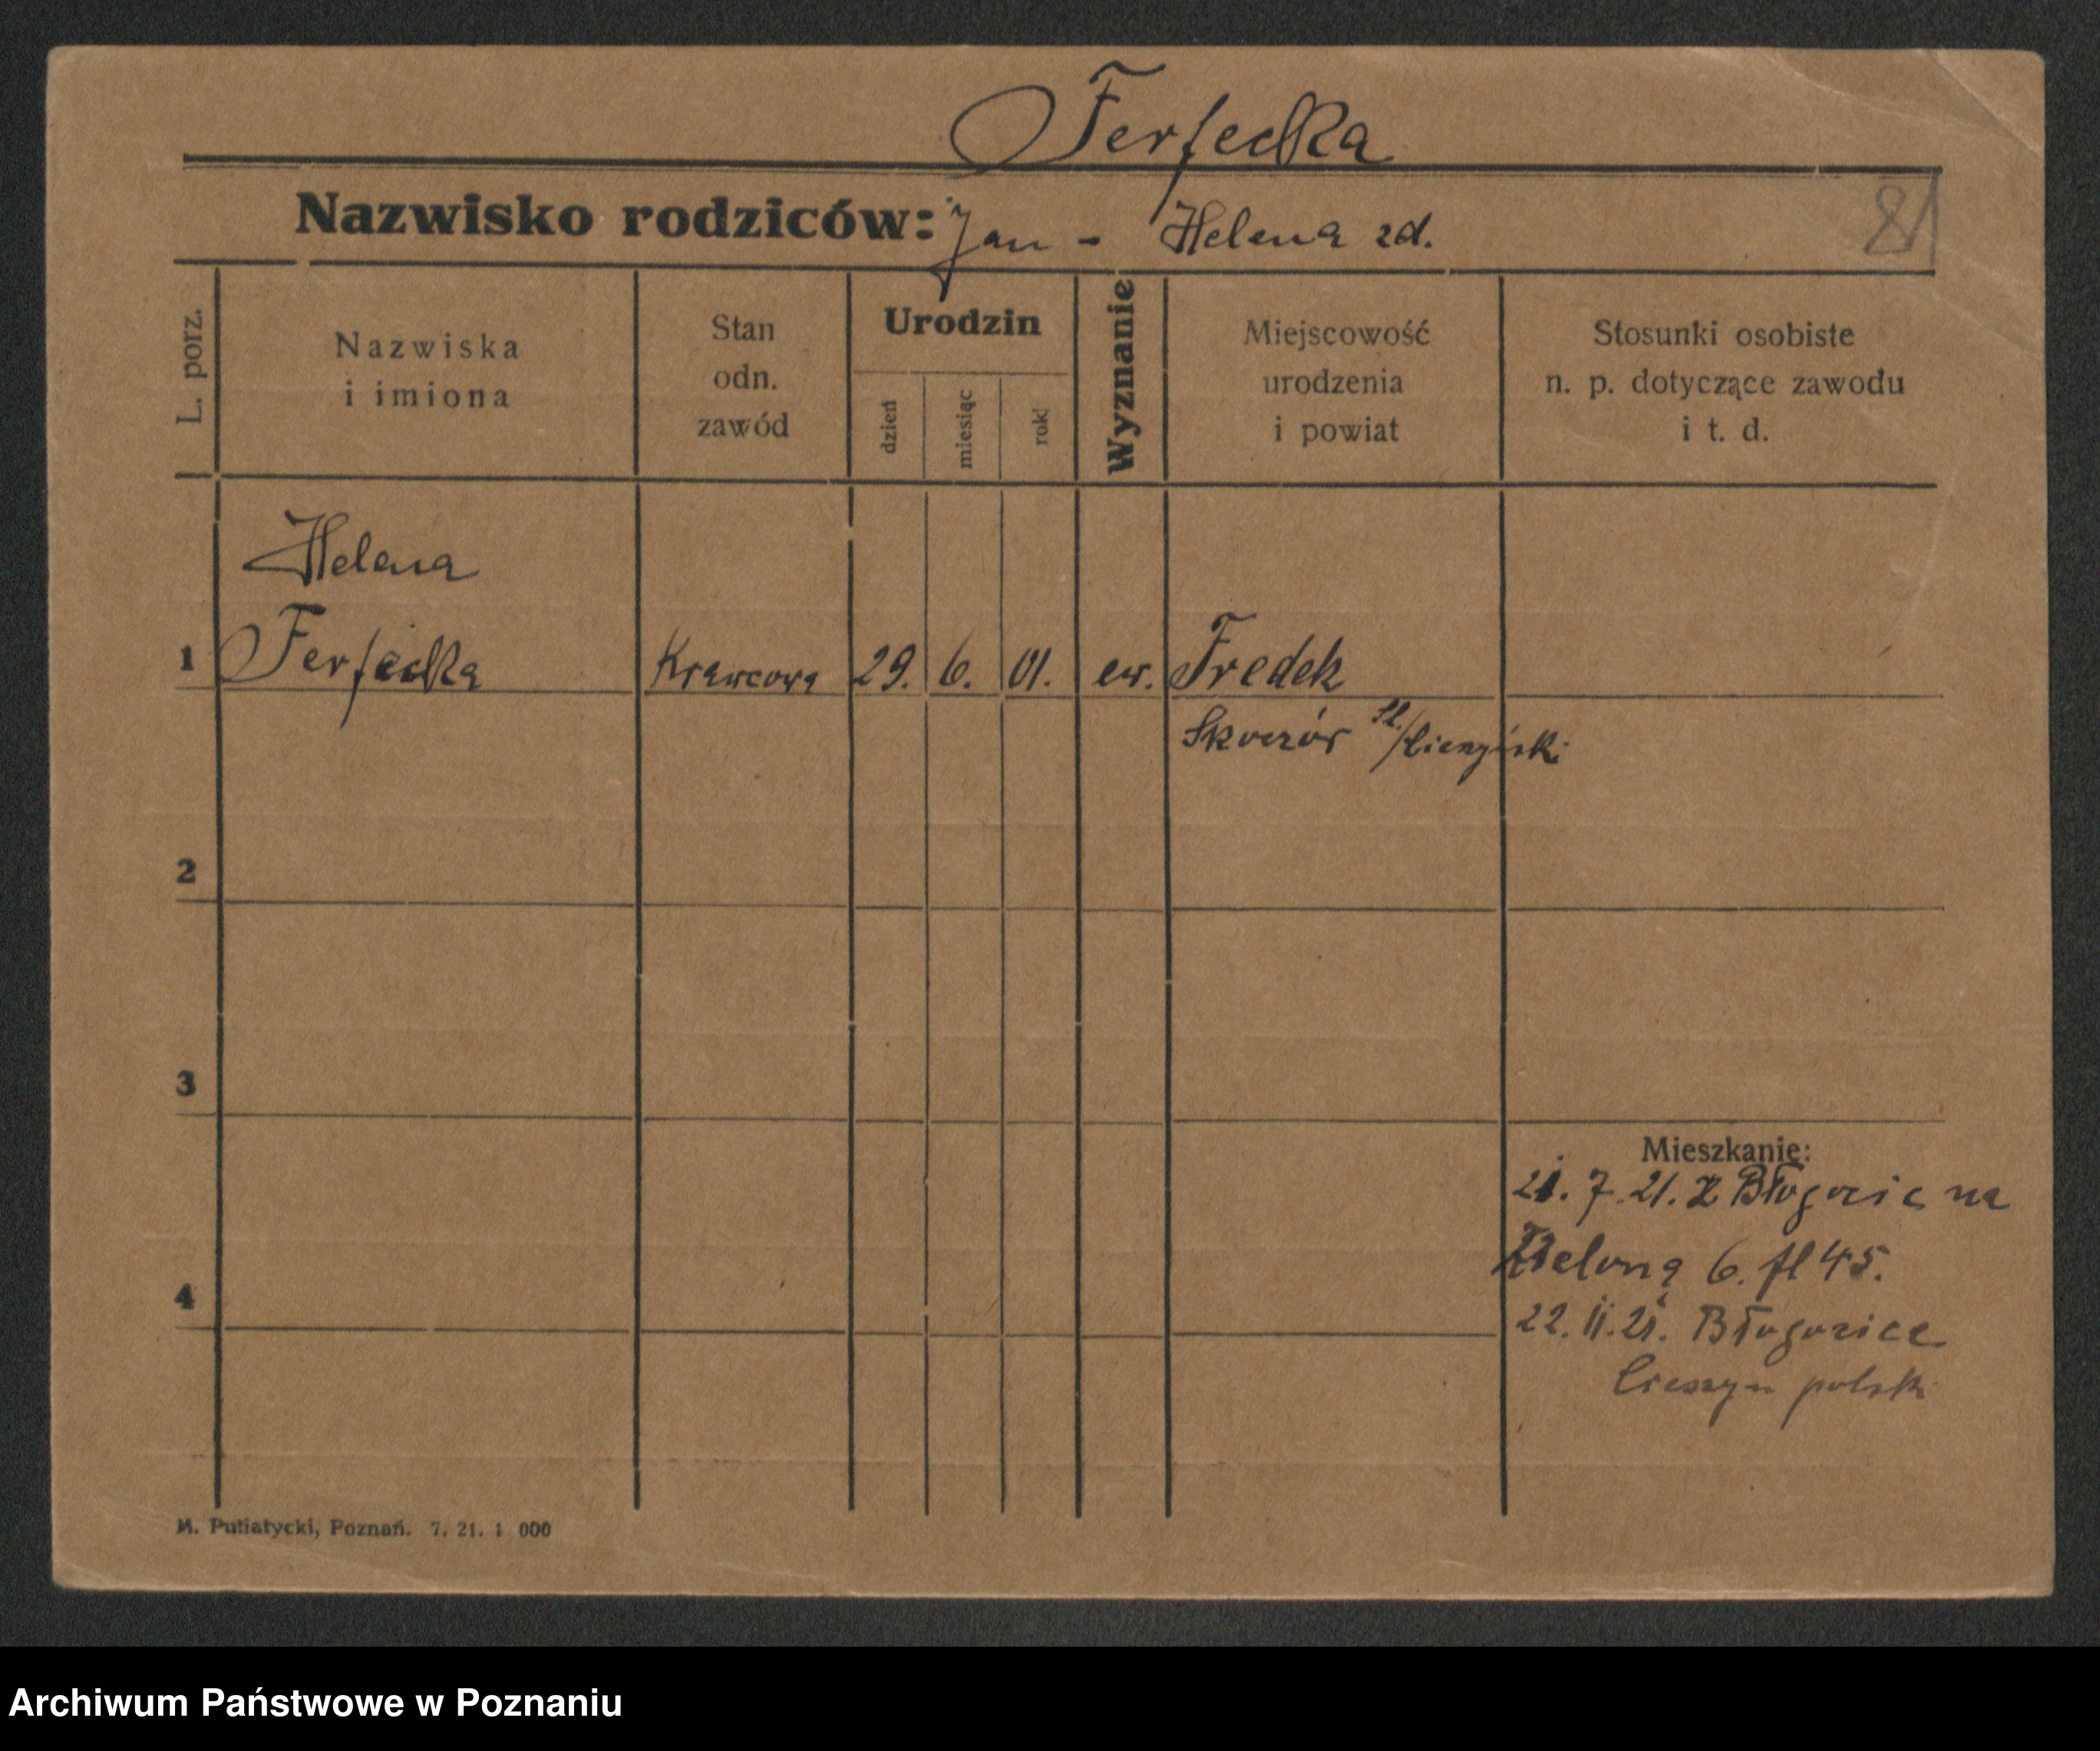 Ferfecka
Nazwisko rodziców: Jan - Helena zd.
81
L. porz.
Nazwiska
i imiona
Stan
odn.
zawód
Urodzin
dzień
miesiąc
rok
Wyznanie
Miejscowość
urodzenia
i powiat
Stosunki osobiste
n. p. dotyczące zawodu
i t. d.
Helena
1 Ferfecka Krawcowa 29. 6. 01. ew. Fredek
Skoczów Śl./Cieszyński
2
3
4
Mieszkanie:
21. 7. 21. z Błogocic na
Zieloną 6. fl 45.
22. 11. 21. Błogocice
Cieszyn polski
M. Putiatycki, Poznań. 7. 21. 1 000
Archiwum Państwowe w Poznaniu